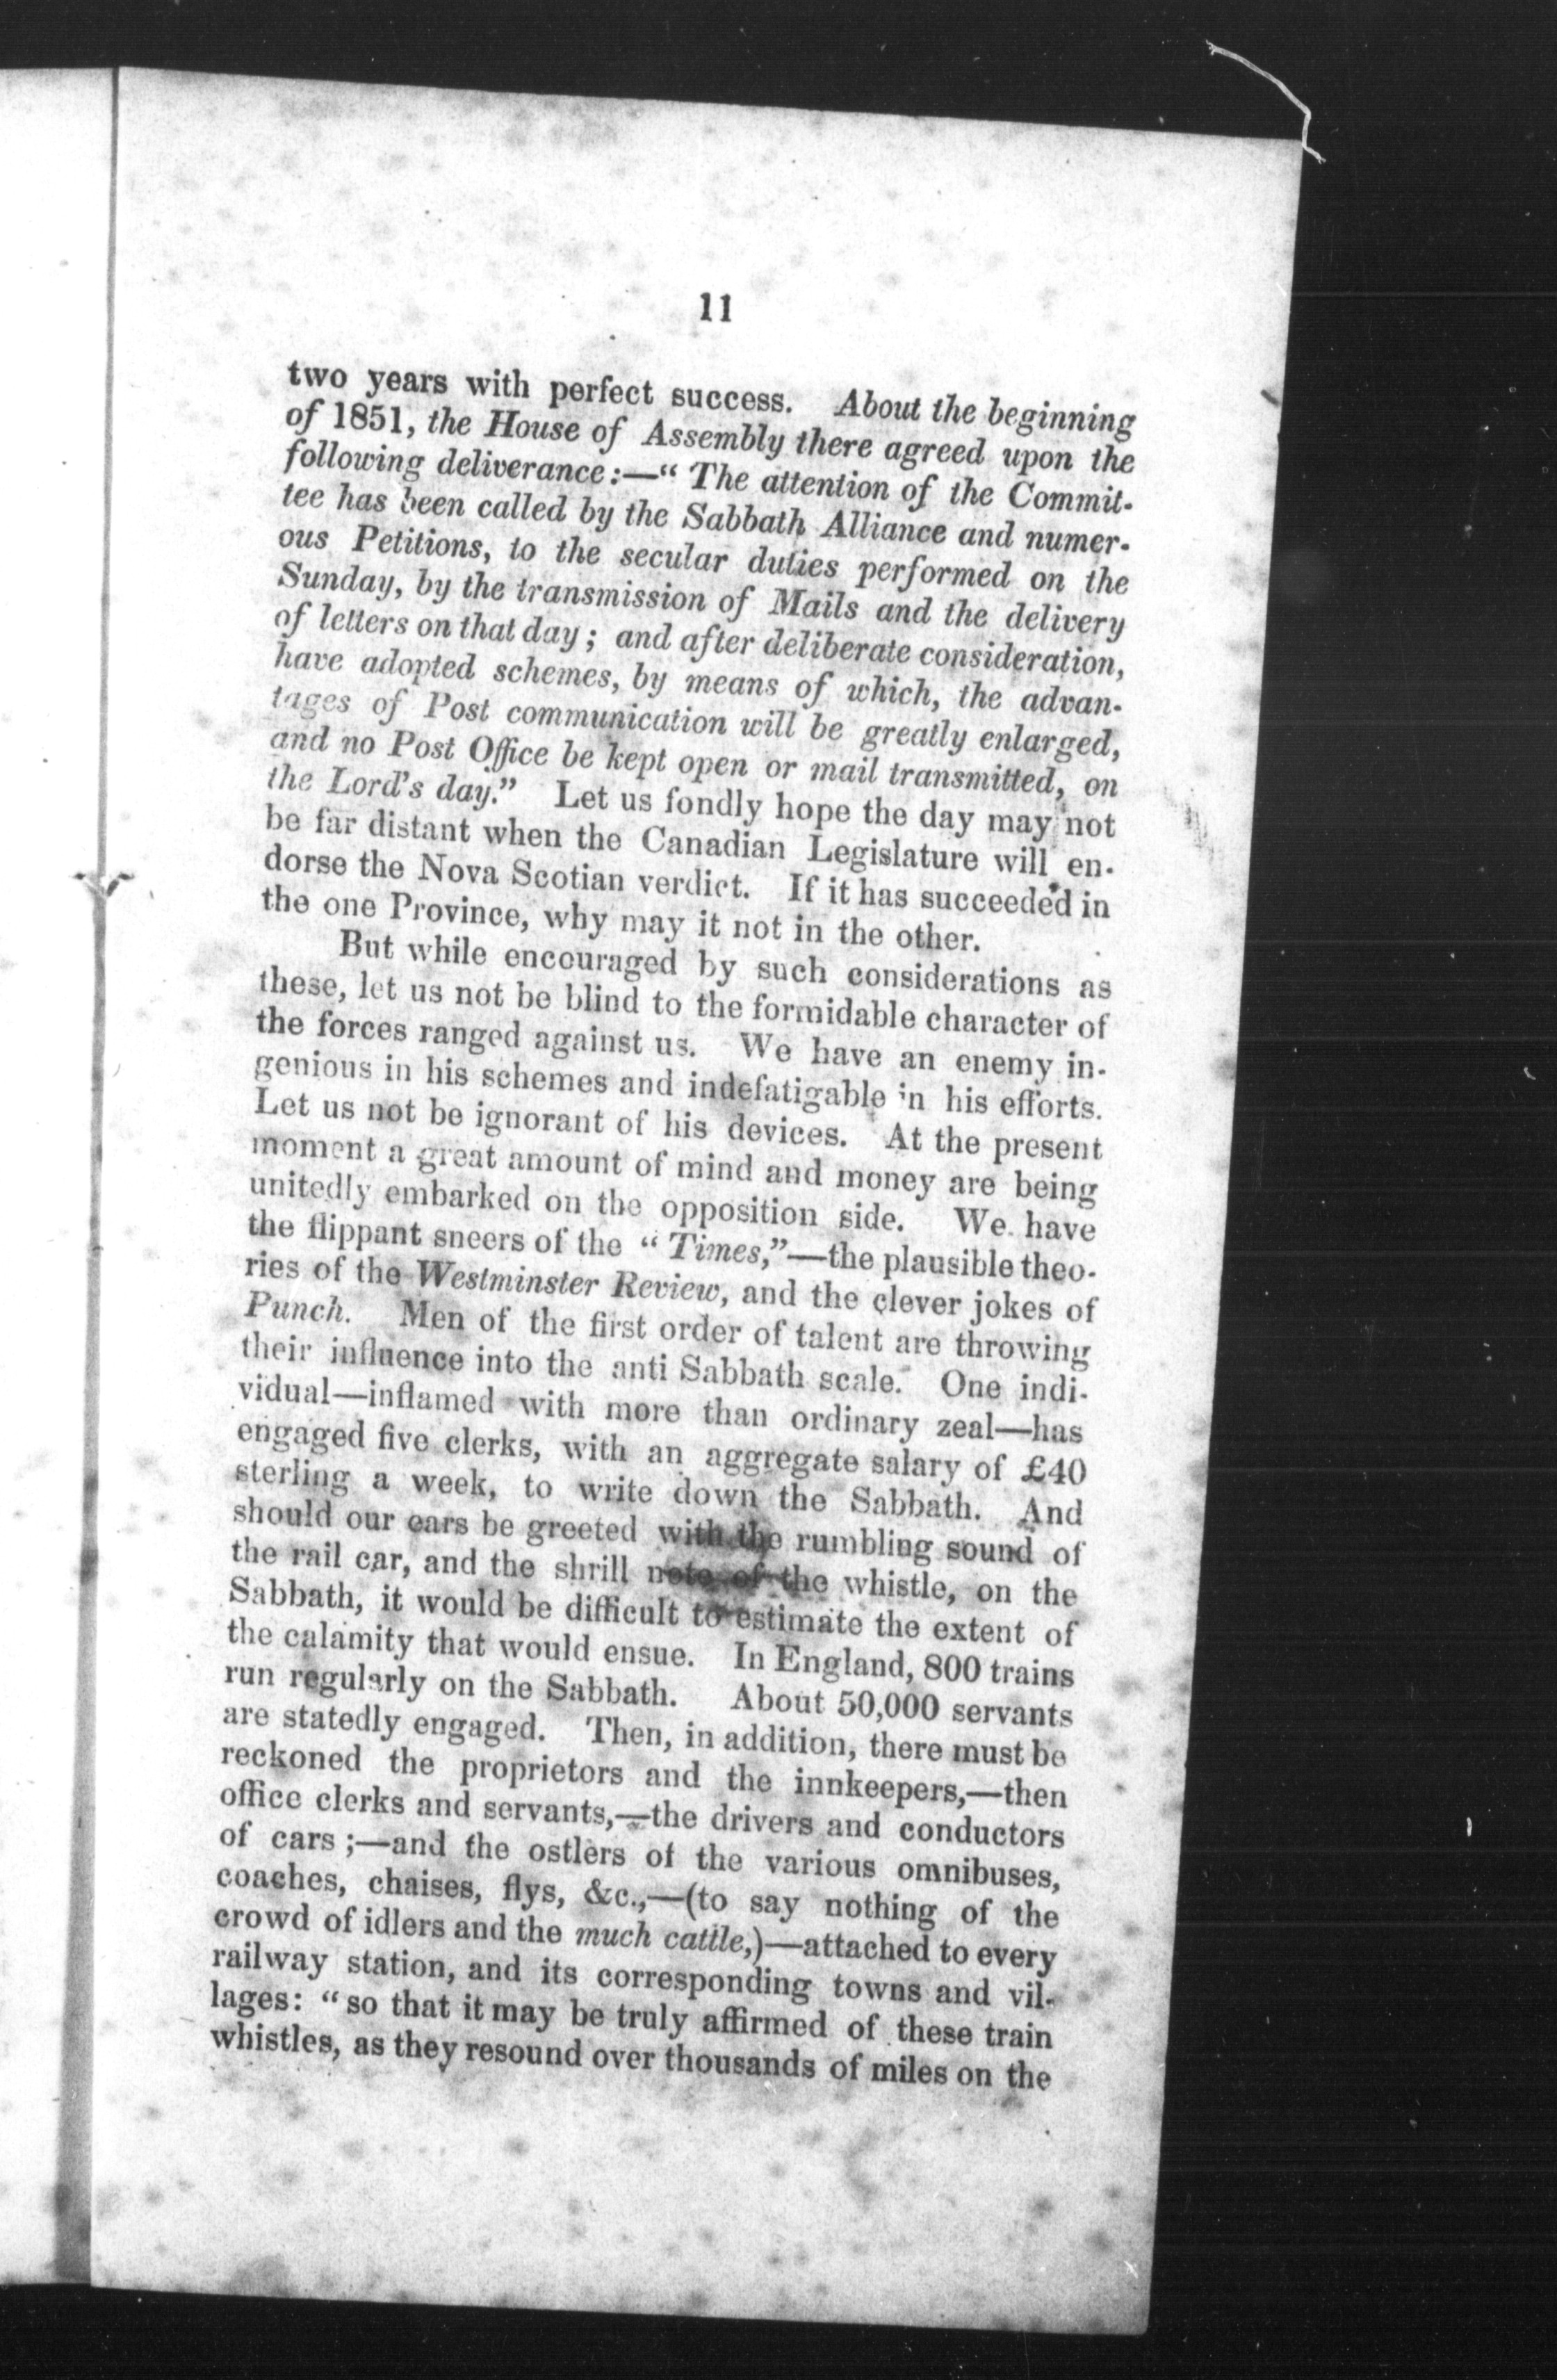 11
two years with perfect success. About the beginning
of 1851, the House of Assembly there agreed upon the
following deliverance:—“ The attention of the Commit-
tee has been called by the Sabbath Alliance and numer-
ous Petitions, to the secular duties performed on the
Sunday, by the transmission of Mails and the delivery
of letters on that day; and after deliberate consideration,
have adopted schemes, by means of which, the advan-
tages of Post communication will be greatly enlarged,
and no Post Office be kept open or mail transmitted, on
the Lord's day.” Let us fondly hope the day may not
be far distant when the Canadian Legislature will en-
dorse the Nova Scotian verdict. If it has succeeded in
the one Province, why may it not in the other.
But while encouraged by such considerations as
these, let us not be blind to the formidable character of
the forces ranged against us. We have an enemy in-
genious in his schemes and indefatigable in his efforts.
Let us not be ignorant of his devices. At the present
moment a great amount of mind and money are being
unitedly embarked on the opposition side. We have
the flippant sneers of the “ Times,”—the plausible theo-
ries of the Westminster Review, and the clever jokes of
Punch. Men of the first order of talent are throwing
their influence into the anti Sabbath scale. One indi-
vidual—inflamed with more than ordinary zeal—has
engaged five clerks, with an aggregate salary of £40
sterling a week, to write down the Sabbath. And
should our ears be greeted with the rumbling sound of
the rail car, and the shrill note of the whistle, on the
Sabbath, it would be difficult to estimate the extent of
the calamity that would ensue. In England, 800 trains
run regularly on the Sabbath. About 50,000 servants
are statedly engaged. Then, in addition, there must be
reckoned the proprietors and the innkeepers,—then
office clerks and servants,—the drivers and conductors
of cars ;—and the ostlers of the various omnibuses,
coaches, chaises, flys, &c.,—(to say nothing of the
crowd of idlers and the much cattle,)—attached to every
railway station, and its corresponding towns and vil-
lages: “ so that it may be truly affirmed of these train
whistles, as they resound over thousands of miles on the